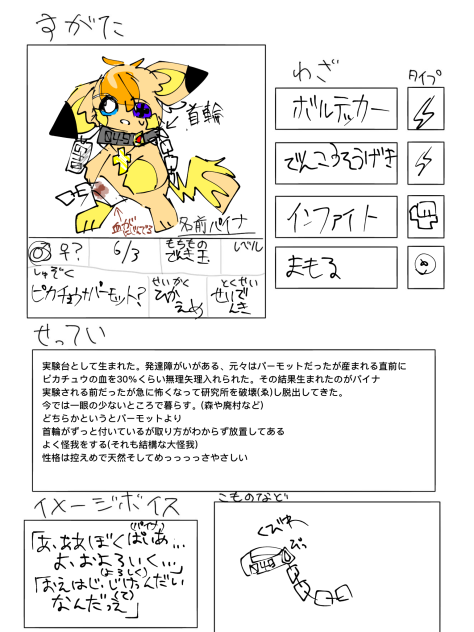 すがた
わざ
タイプ
首輪
ボルテッカー
でんこうそうげき
血が
名前 パイナ
インファイト
♂ ♀?
6/3
もちもの
でんき玉
レベル
まもる
しゅぞく
ピカチュウ パーモット?
せいかく
ひかえめ
とくせい
せいでんき
せってい
実験台として生まれた。発達障がいがある、元々はパーモットだったが産まれる直前に
ピカチュウの血を30%くらい無理矢理入れられた。その結果生まれたのがパイナ
実験される前だったが急に怖くなって研究所を破壊(ゑ)し脱出してきた。
今では一眼の少ないところで暮らす。(森や廃村など)
どちらかというとパーモットより
首輪がずっと付いているが取り方がわからず放置してある
よく怪我をする(それも結構な大怪我)
性格は控えめで天然そしてめっっっっさやさしい
イメージボイス
こものなど
(パイナ)
「あ、ああぼくぱいあ…
よ、およろいく…」
(よろしく)
「おえはじ、じけんだい
なんだっえ」
(て)
くびわ